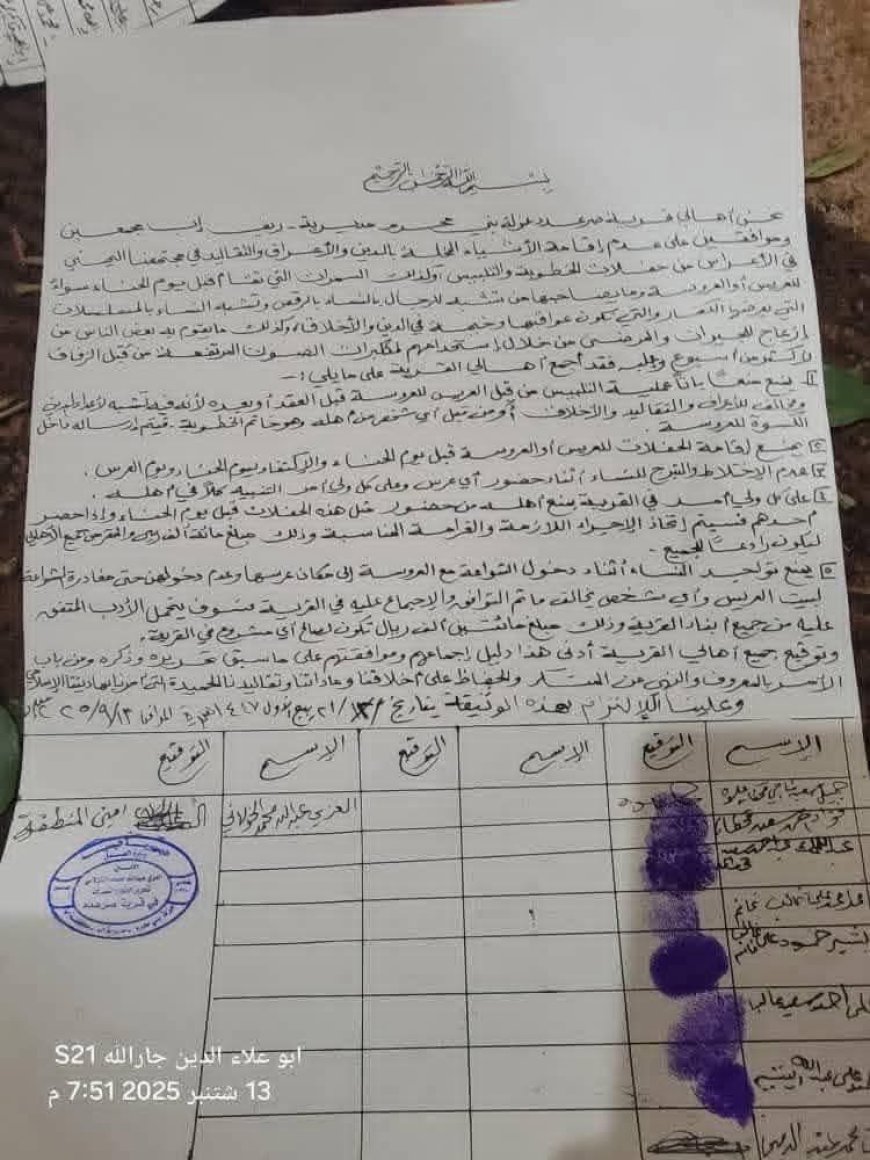 بسم الله الرحمن الرحيم
نحن أهالي قرية صرعدد عزلة بني محرم مديرية - ريف إب مجمعين
وموافقين على عدم إقامة الأشياء المخلة بالدين والأعراف والتقاليد في مجتمعنا اليمني
في الأعراس من حفلات الخطوبة والتلبيس وكذلك السمرات التي تقام قبل يوم الحناء سواءً
للعريس أو العروسة وما يصاحبها من تشبه للرجال بالنساء بالرقص وتشبه النساء بالمسلسلات
التي والتي تكون عواقبها وخيمة في الدين والأخلاق وكذلك ما يقوم به بعض الناس من
إزعاج للجيران والمرضى من خلال إستخدامهم لمكبرات الصوت المرتفعة من قبل الزفاف
لأكثر من أسبوع وعليه فقد أجمع أهالي القرية على ما يلي :-
١ يمنع منعاً باتاً عملية التلبيس من قبل العريس للعروسة قبل العقد أو بعده لأنه فيه تشبه
ومخالف للأعراف والتقاليد والأخلاق أو من قبل أي شخص من أهله وهو خاتم الخطوبة - فيتم إرساله داخل
الكسوة للعروسة .
٢ يمنع إقامة الحفلات للعريس أو العروسة قبل يوم الحناء والإكتفاء بيوم الحناء ويوم العرس .
٣ عدم الإختلاط والتبرج للنساء أثناء حضور أي عرس وعلى كل ولي أمر التنبيه كلاً في أهله .
٤ على كل ولي أمر في القرية يمنع أهله من حضور مثل هذه الحفلات قبل يوم الحناء وإذا حضر
أحدهم فسيتم إتخاذ الإجراء اللازمة والغرامة المناسبة وذلك مبلغ مائة ألف ريال والمقر من جميع الأهالي
ليكون رادعاً للجميع .
٥ يمنع تواجد النساء أثناء دخول الشواعة مع العروسة إلى مكان عرسها وعدم دخولهن حتى مغادرة الشواعة
لبيت العريس وأي شخص يخالف ما تم التوافق والإجماع عليه في القرية فسوف يتحمل الأدب المتفق
عليه من جميع أبناء القرية وذلك مبلغ مائتين ألف ريال تكون لصالح أي مشروع في القرية .
وتوقيع جميع أهالي القرية أدنى هذا دليل إجماعهم وموافقتهم على ما سبق تحريره وذكره ومن باب
الأمر بالمعروف والنهي عن المنكر والحفاظ على أخلاقنا وعاداتنا وتقاليدنا الحميدة التي أمرنا بها ديننا الإسلامي
وعلينا الإلتزام بهذه الوثيقة بتاريخ ٢١/ ربيع الأول ١٤٤٧ الموافق ٢٥/٩/١٣
الإسم التوقيع الإسم التوقيع الإسم التوقيع
العزي عبدالله محمد الخولاني امين المنطقة
فؤاد احمد سعيد
محمد علي غالب غانم
بشير حمود
علي احمد سعيد غالب
علي عبدالله
محمد
في قرية صرعدد
ابو علاء الدين جارالله S21
13 شتنبر 2025 7:51 م